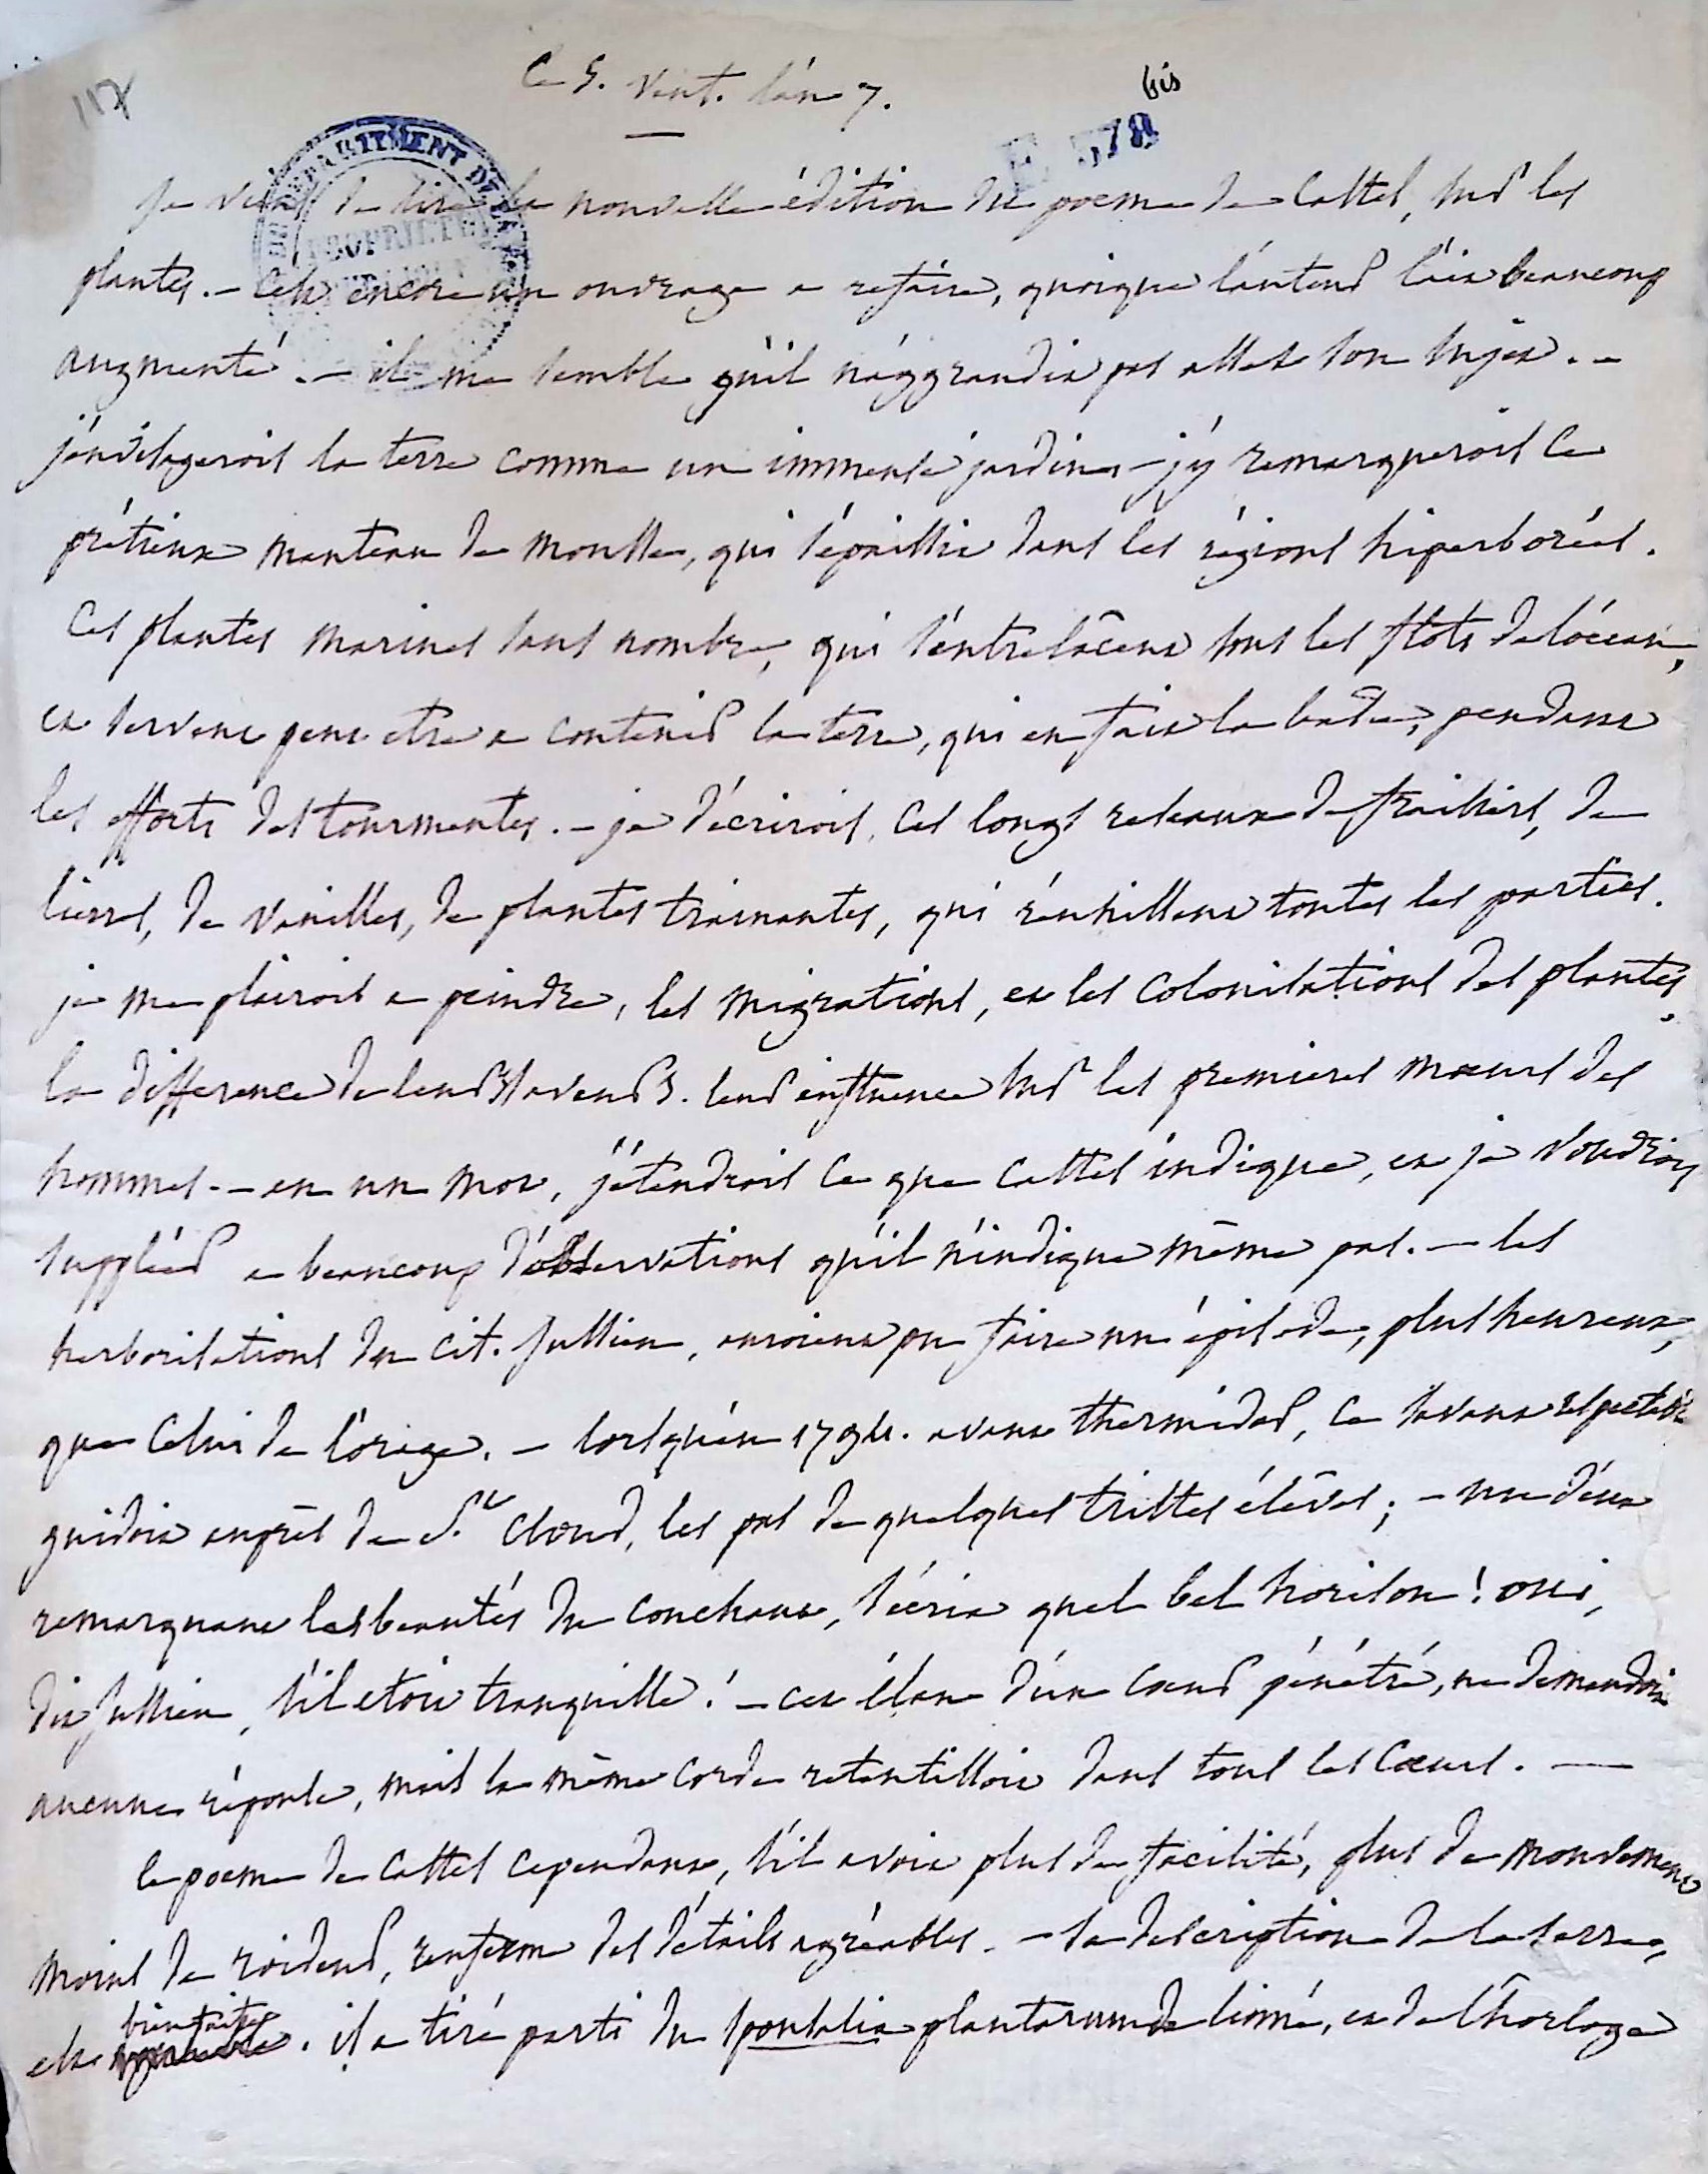 117
Ce 5. Vent. l'an 7.
bis
E 578
DÉPARTEMENT DE
PROPRIÉTÉ
je viens de lire la nouvelle édition du poeme de Castel, sur les
plantes. - C'est encore un ouvrage a refaire, quoique l'auteur l'ait beaucoup
augmenté. - il me semble qu'il n'aggrandit pas assez son sujet. -
j'envisagerois la terre comme un immense jardin - j'y remarquerois ce
prétieux manteau de mousse, qui s'épaissit dans les régions hiperborées.
Ces plantes marines sans nombre, qui s'entrelâcent sous les flots de l'océan,
et servent peut etre a contenir la terre, qui en fait la base, pendant
les efforts des tourmentes. - je décrirois, ces longs reseaux de fraisiers, de
lierres, de vanilles, de plantes trainantes, qui r'enhillent toutes les parties.
je me plairois a peindre, les migrations, et les colonisations des plantes,
la difference de leurs saveurs. leur influence sur les premieres mœurs des
hommes. - en un mot, j'étendrois ce que Castel indique, et je voudrois
suppléer a beaucoup d'observations qu'il n'indique même pas. - les
herborisations du cit. Jussieu, auroient pu faire un épisode, plus heureux,
que celui de l'orage. - lorsqu'en 1794. avant thermidor, ce savant respectable
guidoit auprès de St. Cloud, les pas de quelques tristes élêves; - un d'eux
remarquant les beautés du couchant, s'écria quel bel horison! oui,
dit Jussieu, s'il etoit tranquille! - cet élan d'un cœur pénétré, ne demandoit
aucune réponse, mais la même corde retentissoit dans tous les cœurs. -
le poeme de Castel cependant, s'il avoit plus de facilité, plus de mouvement
moins de roideur, renferme des détails agréables. - sa description de la serre,
est agréable bien faite. il a tiré parti du sponsalia plantarum de linné, et de l'horloge